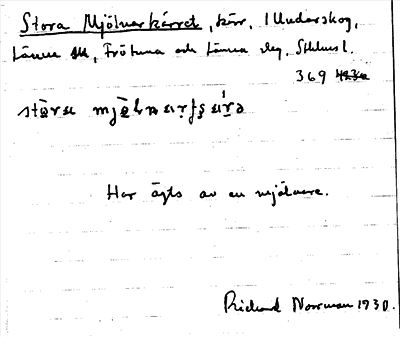 Stora Mjölnarkärret, kärr, 1 Underskog,
Länna sn, Frötuna och Länna slg, Sthlms l.
369
Har ägts av en mjölnare.
Richard Norrman 1930.